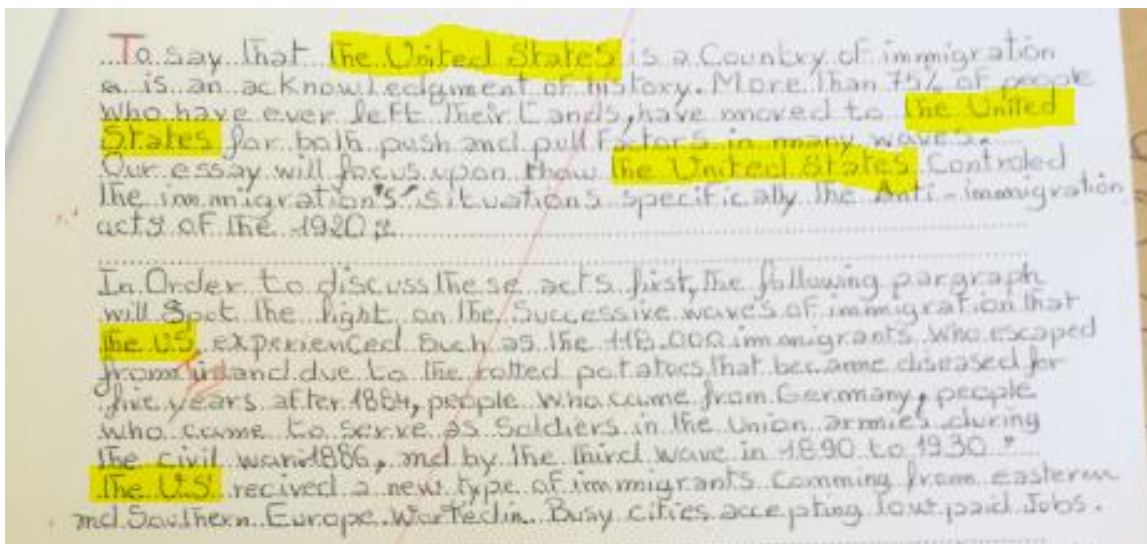 To say that the United States is a Country of immigration
is an acknowledgment of history. More than 75% of people
who have ever left their Lands, have moved to the United
States for both push and pull factors in many waves.
Our essay will focus upon how the United States Controled
the immigration's situations specifically the Anti-immigration
acts of the 1920,
In Order to discuss these acts first, the following pargraph
will Spot the light on the Successive waves of immigration that
the US, experienced Such as the 118.000 immigrants who escaped
from irland due to the rotted potatoes that became diseased for
five years after 1884, people who came from Germany, people
who came to serve as Soldiers in the Union armies during
the civil war 1886, and by the third wave in 1890 to 1930
the U.S recived a new type of immigrants Comming from eastern
and Southern Europe. Worked in Busy cities accepting low paid Jobs.